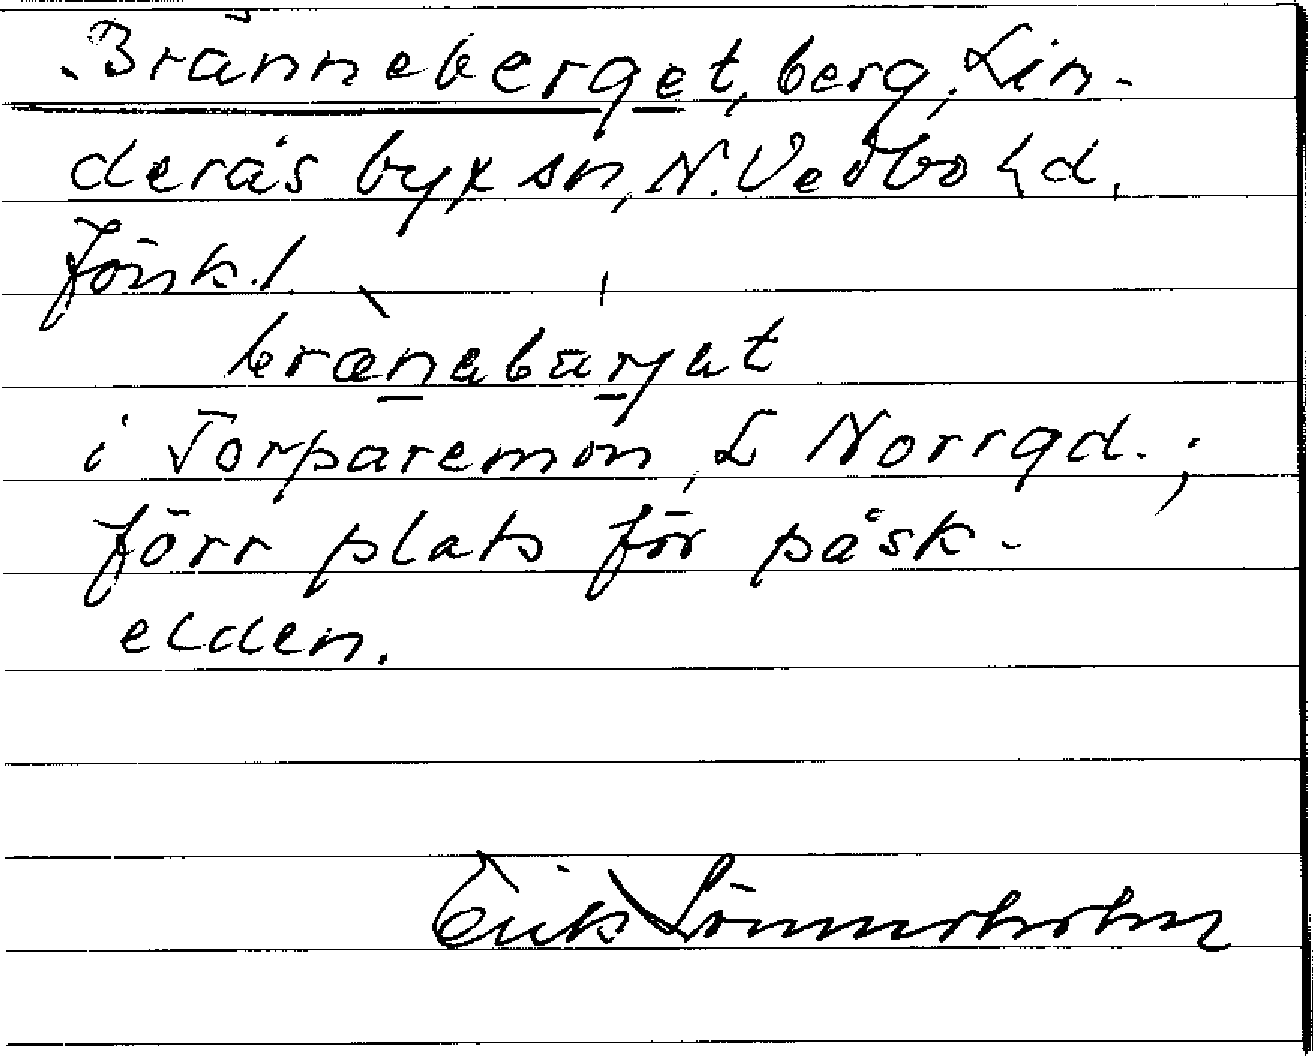 Bränneberget, berg, Lin-
derås by x sn, N. Vedbo hd,
Jönk. l.
brænabärjat
i Torparemon, L Norrgd. ;
förr plats för påsk-
elden.
Erik Lönnerholm